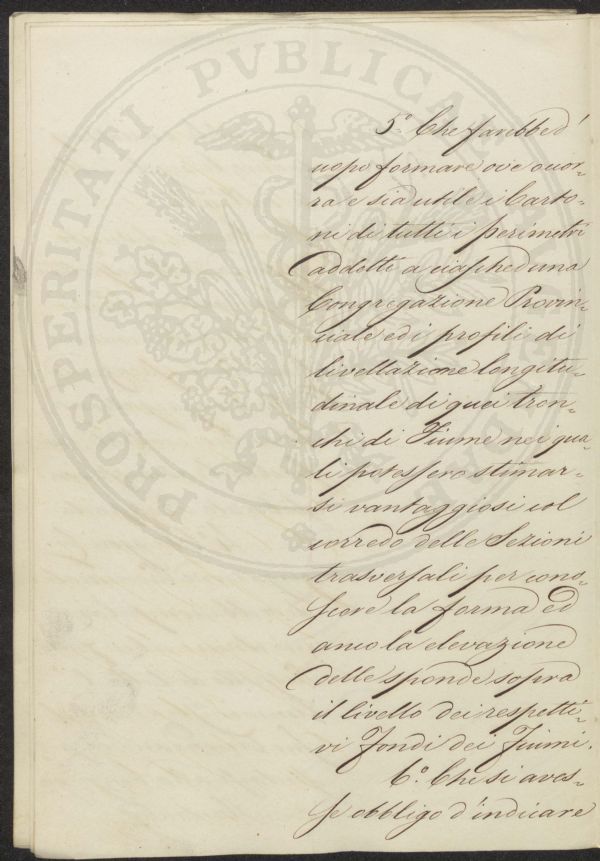 5.° Che sarebbe d'
uopo formare ove occor-
ra e sia utile i Carto-
ni di tutti i perimetri
addetti a ciascheduna
Congregazione Provin-
ciale ed i profili di
livellazione longitu-
dinale di quei tron-
chi di Fiume nei qua-
li potessero stimar-
si vantaggiosi col
corredo delle Sezioni
trasversali per cono-
scere la forma ed
anco la elevazione
delle sponde sopra
il livello dei respetti-
vi Fondi dei Fiumi.
6.° Che si aves-
se obbligo d'indicare
PROSPERITATI PVBLICAE